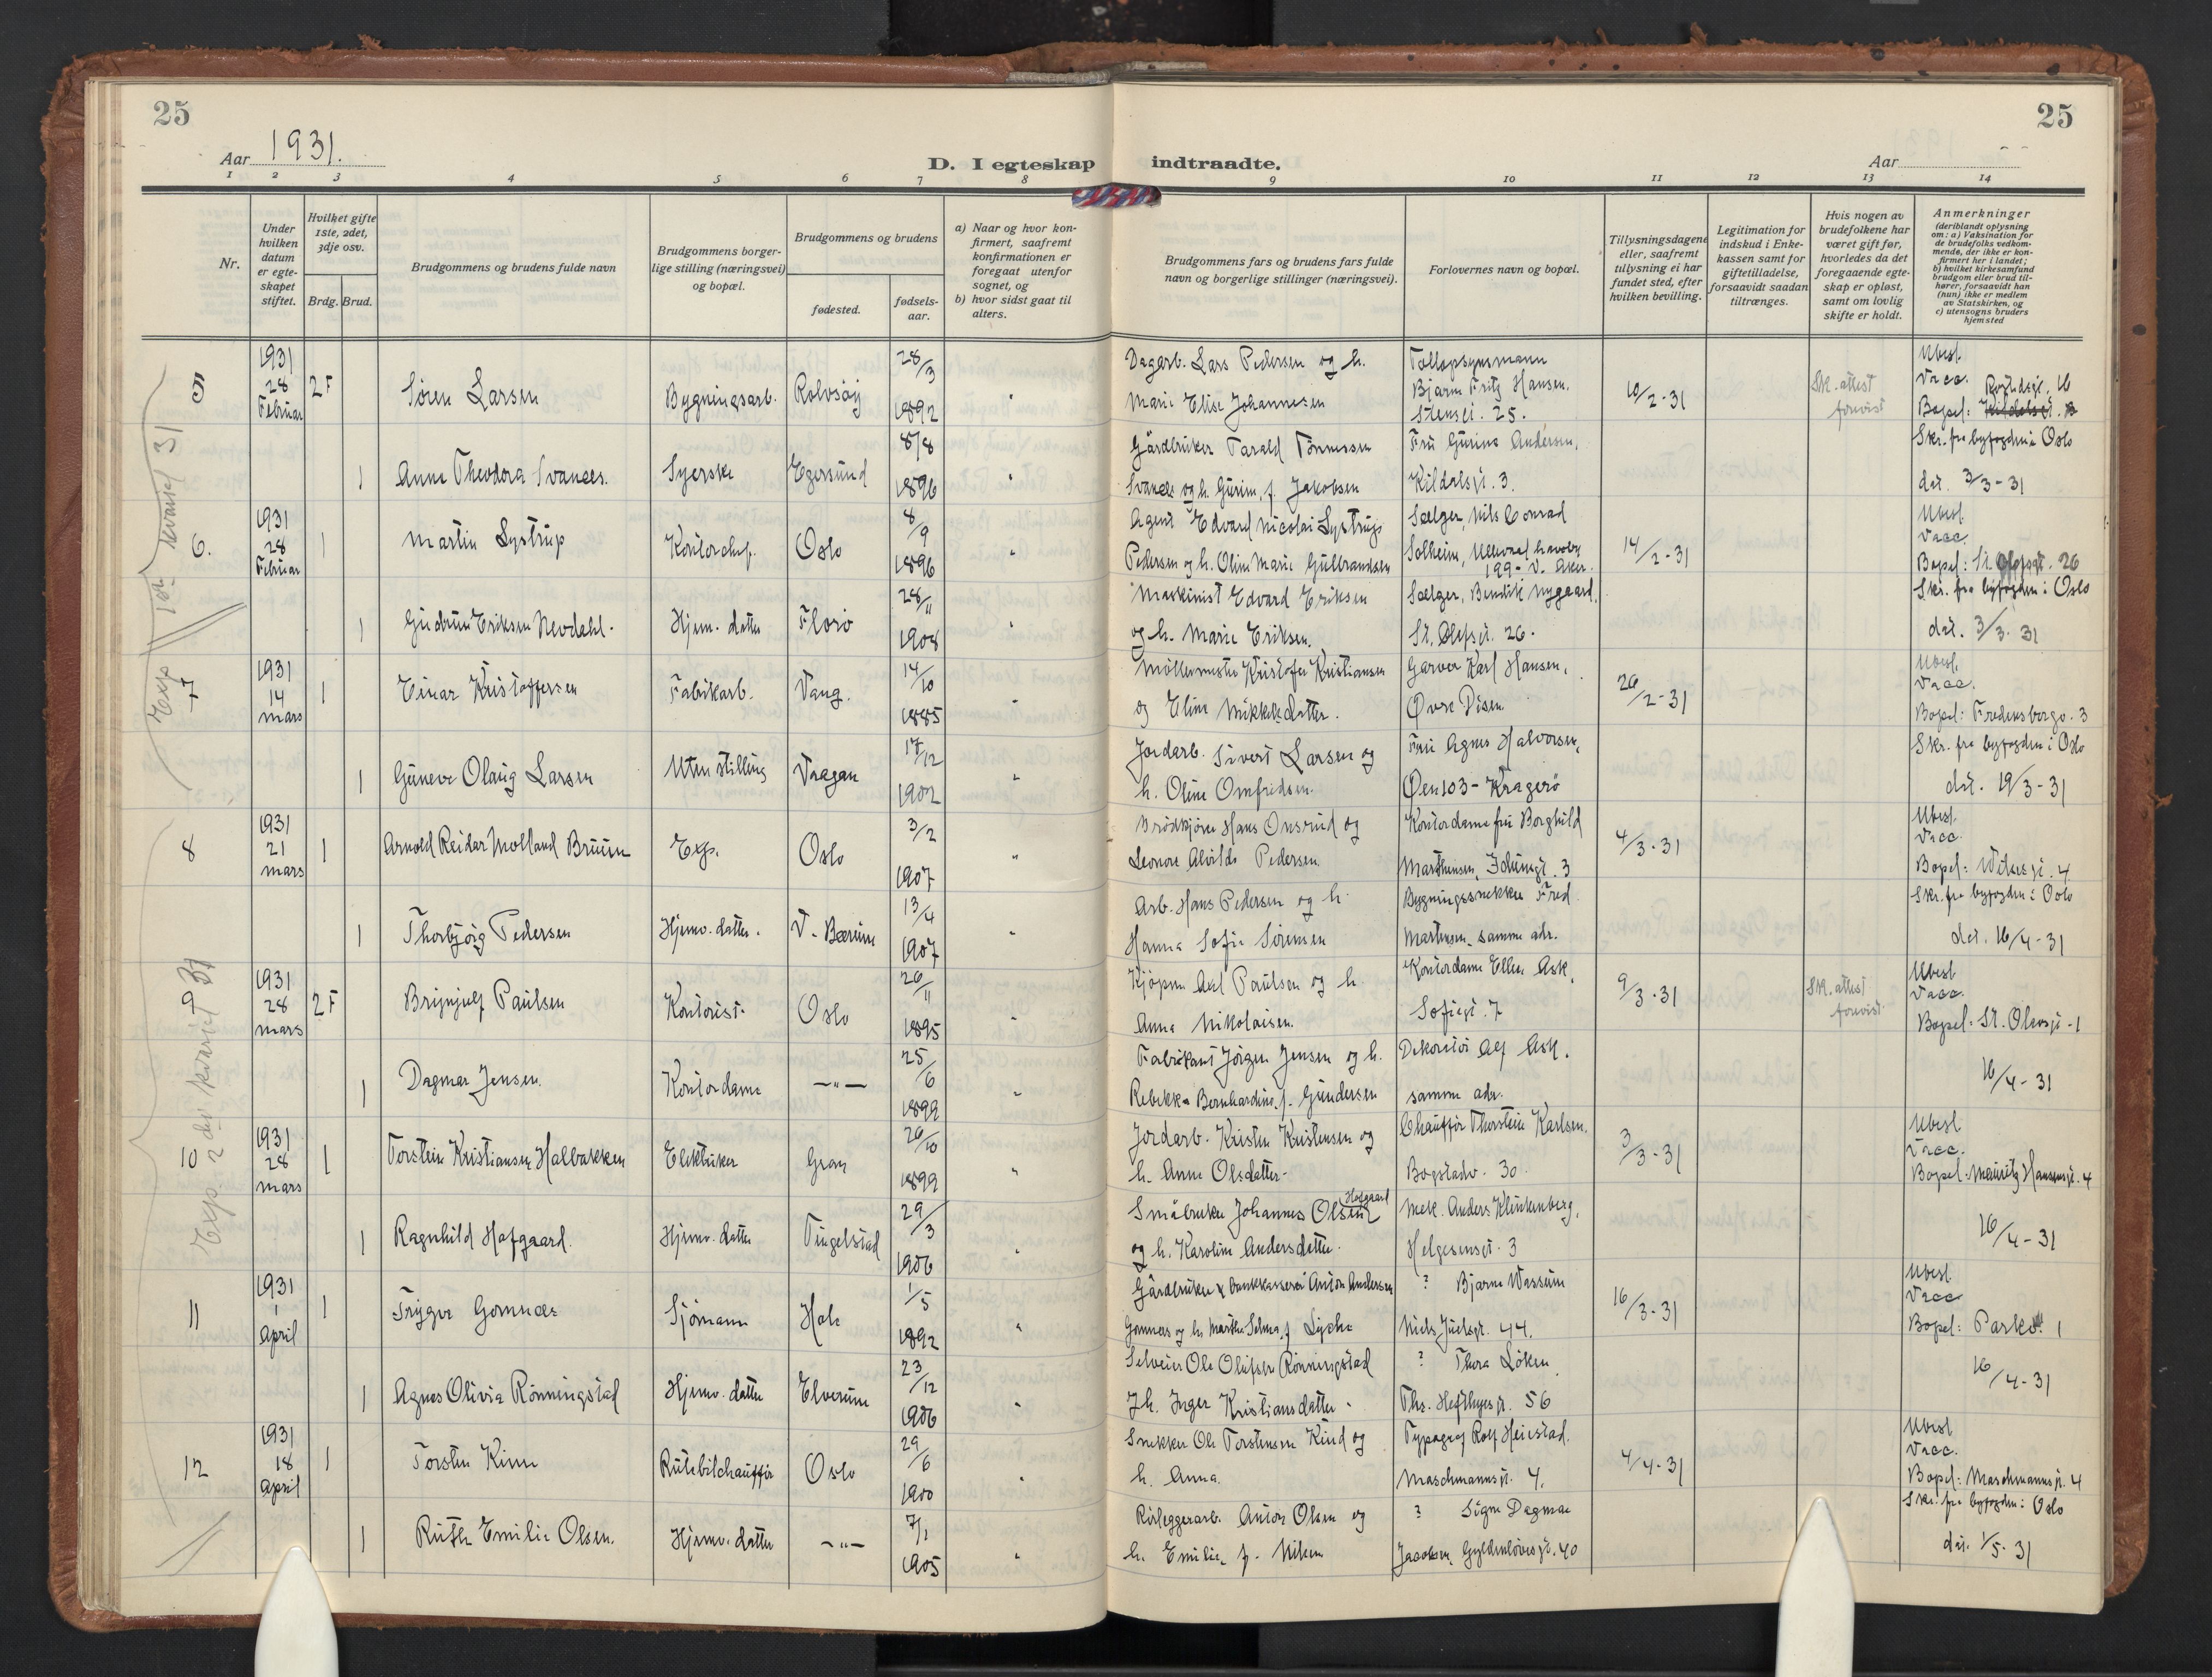 25
25
Aar 1931.
D. I egteskap indtraadte.
Aar
1 2 3 4 5 6 7 8 9 10 11 12 13 14
Nr.
Under hvilken datum er egteskapet stiftet.
Hvilket gifte 1ste, 2det, 3dje osv.
Brdg. Brud.
Brudgommens og brudens fulde navn
Brudgommens borgerlige stilling (næringsvei) og bopæl.
Brudgommens og brudens
fødested.
fødselsaar.
a) Naar og hvor konfirmert, saafremt konfirmationen er foregaat utenfor sognet, og
b) hvor sidst gaat til alters.
Brudgommens fars og brudens fars fulde navn og borgerlige stillinger (næringsvei).
Forlovernes navn og bopæl.
Tillysningsdagene eller, saafremt tillysning ei har fundet sted, efter hvilken bevilling.
Legitimation for indskud i Enkekassen samt for giftetilladelse, forsaavidt saadan tiltrænges.
Hvis nogen av brudefolkene har været gift før, hvorledes da det foregaaende egteskap er opløst, samt om lovlig skifte er holdt.
Anmerkninger (deriblandt oplysning om: a) Vaksination for de brudefolks vedkommende, der ikke er konfirmert her i landet; b) hvilket kirkesamfund brudgom eller brud tilhører, forsaavidt han (hun) ikke er medlem av Statskirken, og c) utensogns bruders hjemsted
Exp 1ste kvartal 31
5 1931 28 Februar 2F Søren Larsen Bygningsarb. Rolvsøy 28/3 1892 " Dagarb. Lars Pedersen og h. Marie Elise Johannesen Tollopsynsmann Bjarne Fritz Hansen, Stensgt. 25. 10/2-31 Sk. attest forevist Ubesl. Vacc. Bopel: 16
1 Anne Theodora Svanees. Syerske Egersund 8/8 1896 " Gårdbruker Tarald Tønnessen Svanees og h. Gurine, f. Jakobsen Fru Gurine Andersen, Kildalsgt. 3. Skr. fra byfogden i Oslo dat. 3/3-31
6. 1931 28 Februar 1 Martin Systrup Kontorchef. Oslo 8/9 1896 " Agent Edvard Nicolai Systrup Pedersen og h. Oline Marie Gulbrandsen Sælger, Nils Conrad Solheim, Ullevaal haveby 199 - V. Aker. 14/2-31 Ubesl. Vacc. Bopel: St. Olafsgt. 26
1 Gudrun Eriksen Nevdahl. Hjem. datter Florø 28/11 1908 " Maskinist Edvard Eriksen og h. Marie Eriksen. Sælger, Bendik Nygaard, St. Olafsgt. 26. Skr. fra byfogden i Oslo dat. 3/3. 31
7 1931 14 mars 1 Einar Kristoffersen Fabrikarb. Vang. 14/10 1885 " Møllermester Kristofer Kristiansen og Eline Mikkelsdatter. Garver Karl Hansen, Øvre Disen 26/2-31 Ubesl. Vacc. Bopel: Fredensborgv. 3
1 Gunevor Olaug Larsen Uten stilling 17/12 1902 " Jordarb. Sivert Larsen og h. Oline Omfredsen. Fru Agnes Halvorsen, Øen 103 - Kragerø Skr. fra byfogden i Oslo dat. 19/3-31
8 1931 21 mars 1 Arnold Reidar Molland Bruun Exp. Oslo 3/2 1907 " Brødkjører Hans Onsrud og Leonore Alvilde Pedersen Kontordame frk Borghild Marthinsen, Idunsgt. 3 4/3-31 Ubesl. Vacc. Bopel: 4
1 Thorbjørg Pedersen Hjemv. datter. V. Bærum 13/4 1907 " Arb. Hans Pedersen og h. Hanna Sofie Sørensen Bygningssnekker Fred Martinsen, samme adr. Skr. fra byfogden i Oslo dat. 16/4-31
Exp. 2det kvartal 31
9 1931 28 mars 2F Brynjulf Paulsen Kontorist. Oslo 26/11 1895 " Kjøpm Axel Paulsen og h. Anna Nikolaisen. Kontordame Ellen Ask, Sofiegt. 7 9/3.31 Sk. attest forevist Ubesl. Vacc. Bopel: St. Olavsgt - 1
1 Dagmar Jensen. Kontordame —"— 25/6 1899 " Fabrikant Jørgen Jensen og h. Rebekka Bernhardine, f. Gundersen Dekoratør Alf Ask. samme adr. 16/4-31
10 1931 28 mars 1 Torstein Kristiansen Halbakken Elektriker Gran 26/10 1899 " Jordarb. Kristen Kristensen og h. Anne Olsdatter. Chauffør Thorstein Karlsen. Bogstadv. 30. 3/3-31 Ubesl. Vacc. Bopel: Mauritz Hansensgt. 4
1 Ragnhild Hofgaard. Hjemv. datter Tingelstad 29/3 1906 " Småbruker Johannes Olsen Hofgaard og h. Karoline Andersdatter. Mek. Anders Klinkenberg, Helgesensgt. 3 16/4-31
11 1931 1 April 1 Trygve Gomnæs Sjømann Hole 1/5 1892 " Gårdbruker & bankkasserer Anton Andersen Gomnæs og h. Marthe Selma, f Lyche ? Bjarne Wassum Niels Juelsgt. 44. 16/3-31 Ubesl. Vacc Bopel: Parkv. 1
1 Agnes Olivia Rønningstad Hjemv. datter Elverum 23/12 1906 " Selveier Ole Olufsen Rønningstad J h. Inger Kristiansdatter. ? Thora Løken Ths. Heftyesgt. 56 16/4-31
12 1931 18 April 1 Torsten Kind Rutebilchauffør Oslo 29/6 1900 " Snekker Ole Torstensen Kind og h. Anna. Typograf Rolf Heiestad. Maschmannsgt. 4. 4/4-31 Ubesl. Vacc. Bopel: Maschmannsgt. 4
1 Ruth Emilie Olsen. Hjemv. datter —"— 7/1 1905 " Rørleggerarb. Anton Olsen og h. Emilie, f. ? Signe Dagmar Jacobsen, Gyldenløvesgt. 40 Skr. fra byfogden i Oslo dat. 1/5-31